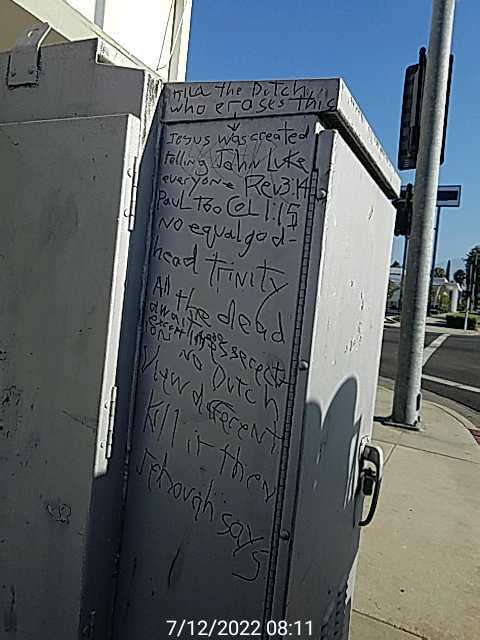 Kill the Dutch
who erases this
Jesus was created
telling John Luke
everyone Rev 3:14
Paul Too Col 1:15
no equal god-
head trinity
All the dead
await
no Dutch
View different
Kill it then
Jehovah says
7/12/2022 08:11